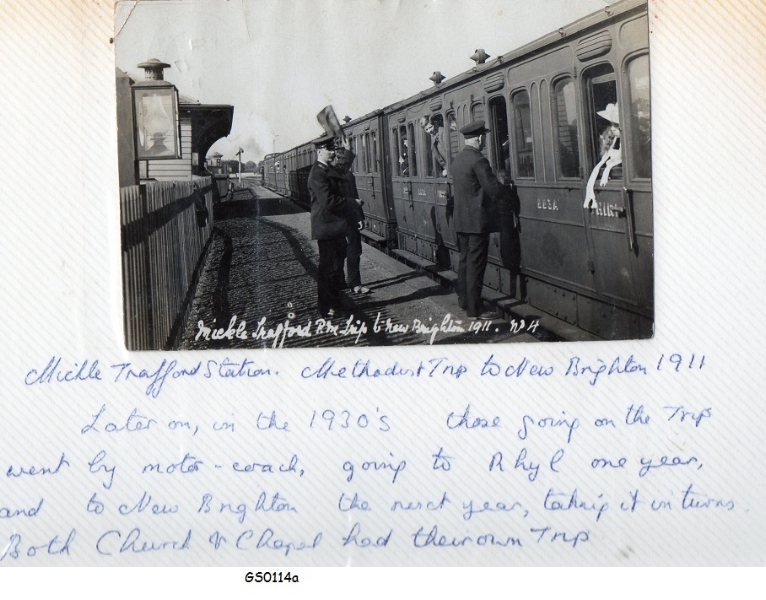 223A
Mickle Trafford P.M. Trip to New Brighton 1911. No 4
Mickle Trafford Station. Methodist Trip to New Brighton 1911
Later on, in the 1930's those going on the Trip
went by motor-coach, going to Rhyl one year,
and to New Brighton the next year, taking it in turns.
Both Church & Chapel had their own Trip
GS0114a